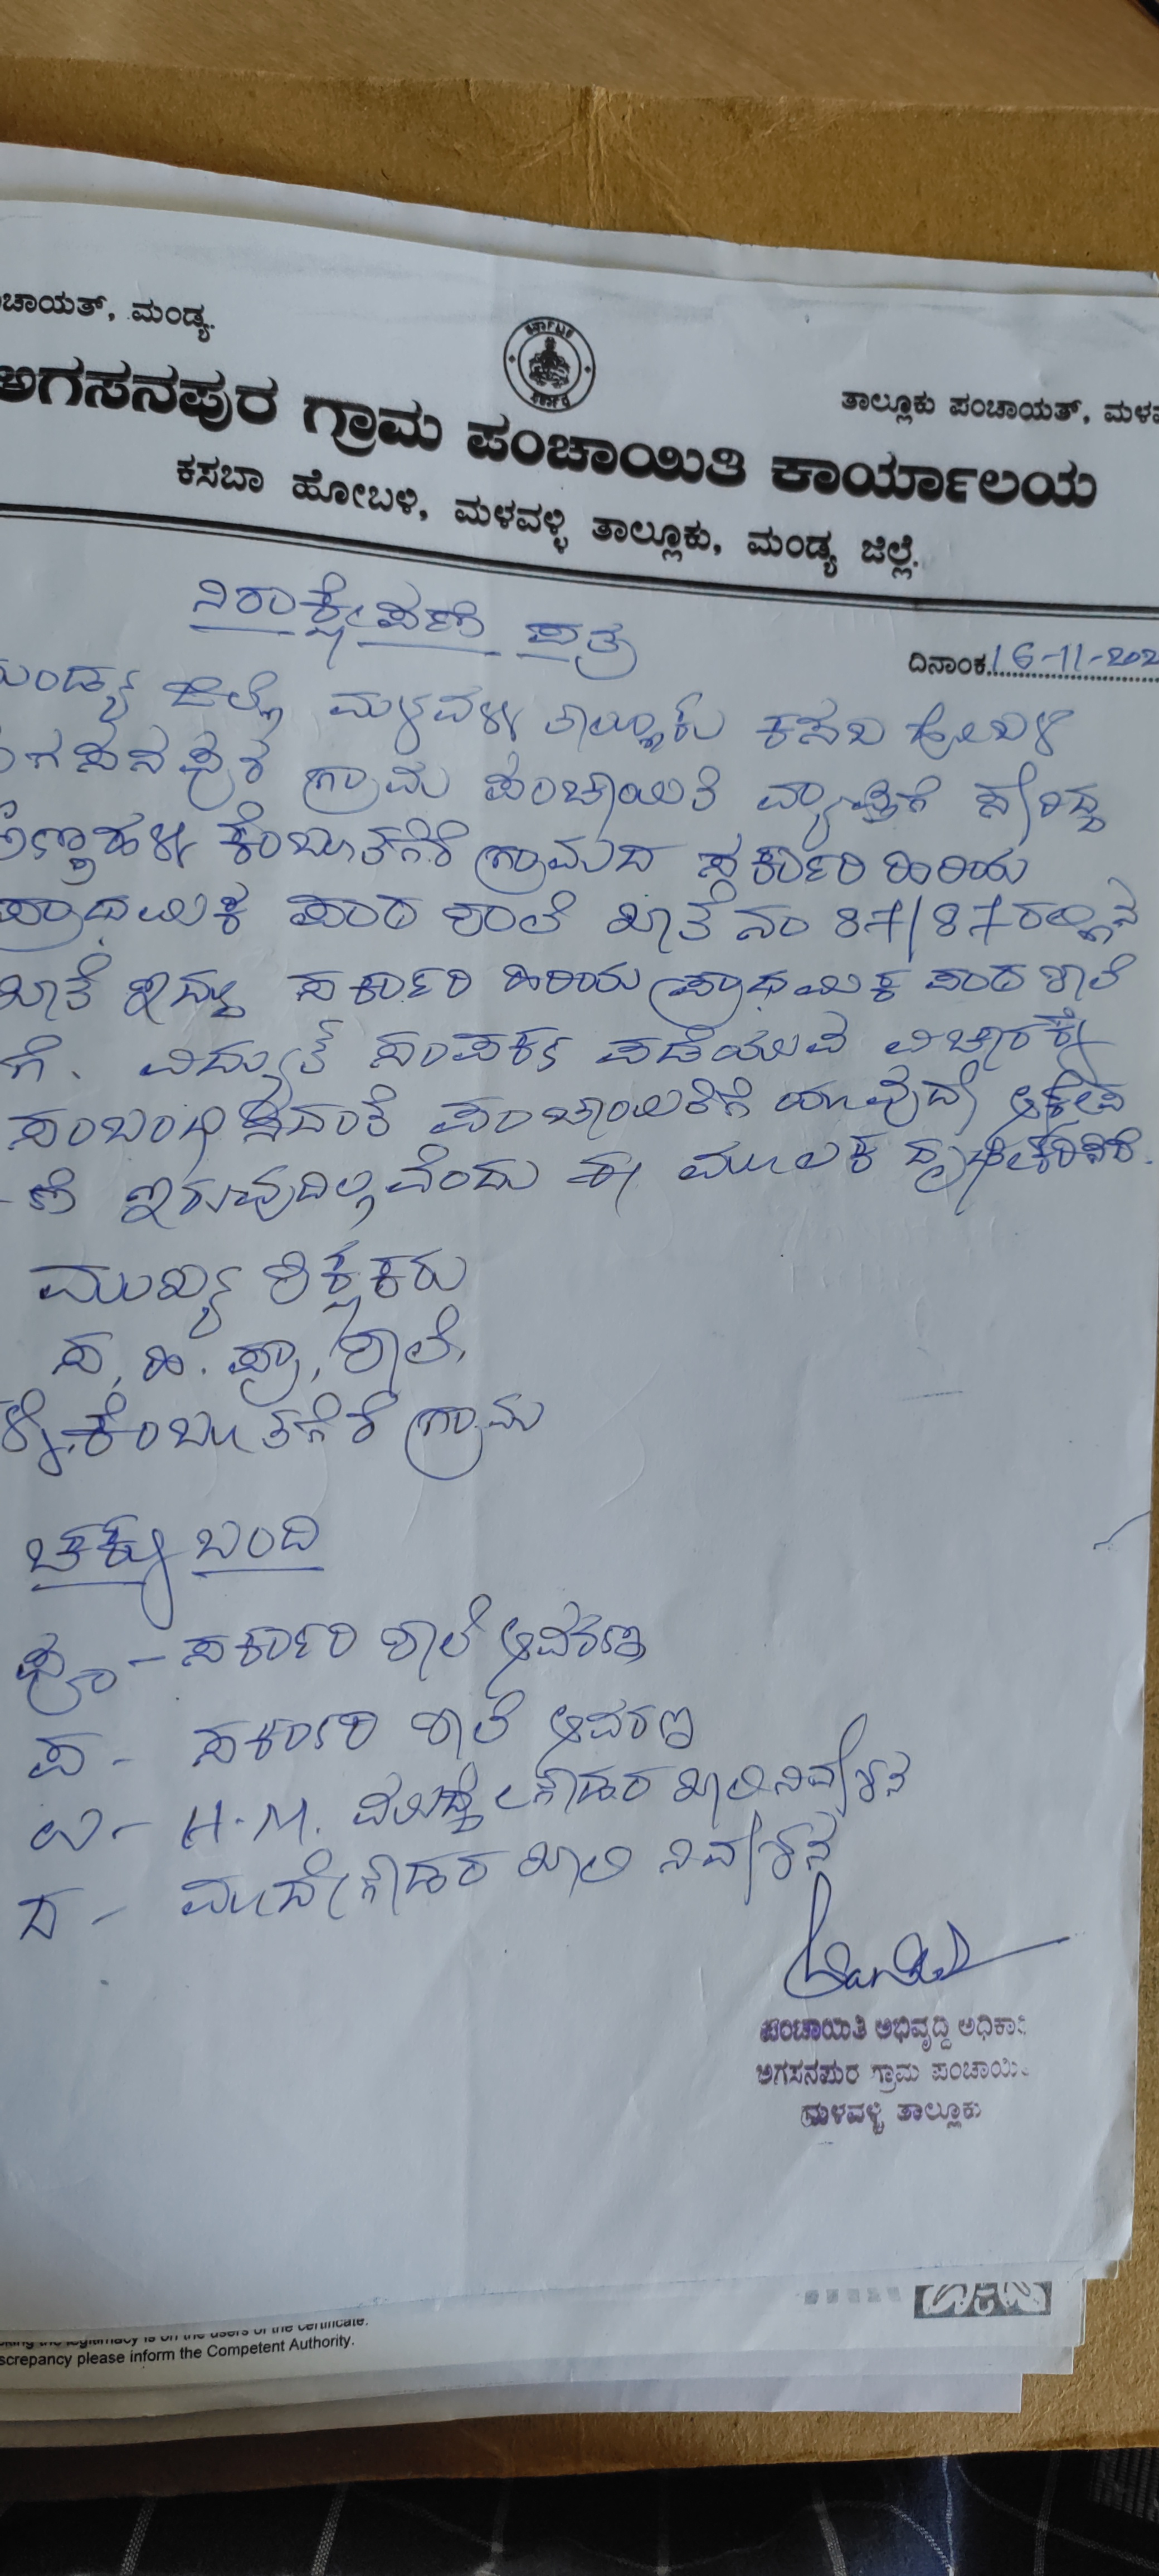 ಚಾಯತ್, ಮಂಡ್ಯ.
ತಾಲ್ಲೂಕು ಪಂಚಾಯತ್, ಮಳವ
ಅಗಸನಪುರ ಗ್ರಾಮ ಪಂಚಾಯಿತಿ ಕಾರ್ಯಾಲಯ
ಕಸಬಾ ಹೋಬಳಿ, ಮಳವಳ್ಳಿ ತಾಲ್ಲೂಕು, ಮಂಡ್ಯ ಜಿಲ್ಲೆ.
ನಿರಾಕ್ಷೇಪಣೆ ಪತ್ರ
ದಿನಾಂಕ.16-11-202
ಮಂಡ್ಯ ಜಿಲ್ಲೆ ಮಳವಳ್ಳಿ ತಾಲ್ಲೂಕು ಕಸಬ ಹೋಬಳಿ
ಗಸನಪುರ ಗ್ರಾಮ ಪಂಚಾಯಿತಿ ವ್ಯಾಪ್ತಿಗೆ ಸೇರಿದ್ದ
ಕೆಂಬೂತಗೆರೆ ಗ್ರಾಮದ ಸರ್ಕಾರಿ ಹಿರಿಯ
ಪ್ರಾಥಮಿಕ ಪಾಠ ಶಾಲೆ ಖಾತೆ ನಂ 87/87 ರಲ್ಲಿನ
ಖಾತೆ ಇದ್ದು ಸರ್ಕಾರಿ ಹಿರಿಯ ಪ್ರಾಥಮಿಕ ಪಾಠ ಶಾಲೆ
ಗೆ. ವಿದ್ಯುತ್ ಸಂಪರ್ಕ ಪಡೆಯುವ ವಿಚಾರಕ್ಕೆ
ಸಂಬಂಧಿಸಿದಂತೆ ಪಂಚಾಯಿತಿಗೆ ಯಾವುದೇ ಆಕ್ಷೇಪ
-ಣೆ ಇರುವುದಿಲ್ಲವೆಂದು ಈ ಮೂಲಕ ದೃಢೀಕರಿಸಿದೆ.
ಮುಖ್ಯ ಶಿಕ್ಷಕರು
ಸ, ಹಿ. ಪ್ರಾ, ಶಾಲೆ,
ಕೆಂಬೂತಗೆರೆ ಗ್ರಾಮ
ಚಕ್ಕು ಬಂದಿ
ಪೂ - ಸರ್ಕಾರಿ ಶಾಲೆ ಆವರಣ
ಪ - ಸರ್ಕಾರಿ ಶಾಲೆ ಆವರಣ
ಉ - H.M. ಖಾಲಿ ನಿವೇಶನ
ದ - ಮಾದೇಗೌಡರ ಖಾಲಿ ನಿವೇಶನ
ಪಂಚಾಯಿತಿ ಅಭಿವೃದ್ಧಿ ಅಧಿಕಾರಿ
ಅಗಸನಪುರ ಗ್ರಾಮ ಪಂಚಾಯಿ
ಮಳವಳ್ಳಿ ತಾಲ್ಲೂಕು
king the legitimacy is on the users of the certificate.
screpancy please inform the Competent Authority.